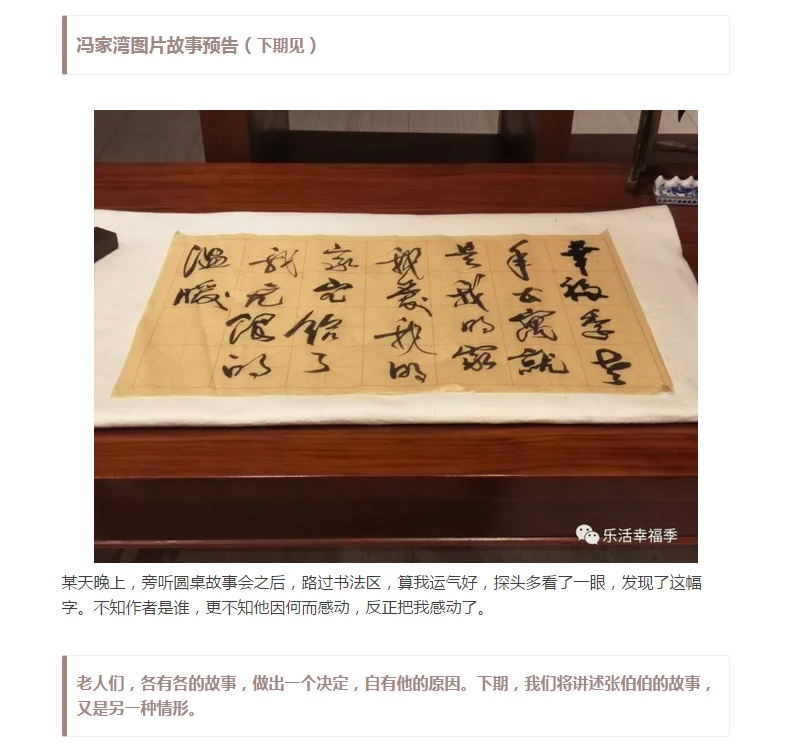 冯家湾图片故事预告（下期见）
幸福季老
年公寓就
是我的家
我爱我的
家它给了
我无限的
温暖
乐活幸福季
某天晚上，旁听圆桌故事会之后，路过书法区，算我运气好，探头多看了一眼，发现了这幅
字。不知作者是谁，更不知他因何而感动，反正把我感动了。
老人们，各有各的故事，做出一个决定，自有他的原因。下期，我们将讲述张伯伯的故事，
又是另一种情形。